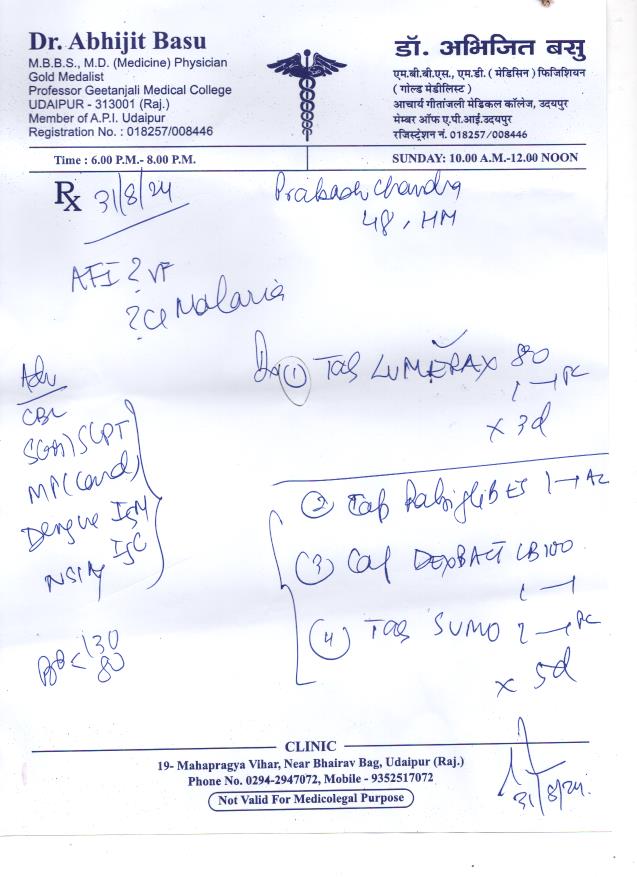 Dr. Abhijit Basu
M.B.B.S., M.D. (Medicine) Physician
Gold Medalist
Professor Geetanjali Medical College
UDAIPUR - 313001 (Raj.)
Member of A.P.I. Udaipur
Registration No. : 018257/008446
डॉ. अभिजित बसु
एम.बी.बी.एस., एम.डी. ( मेडिसिन ) फिजिशियन
( गोल्ड मेडीलिस्ट )
आचार्य गीतांजली मेडिकल कॉलेज, उदयपुर
मेम्बर ऑफ ए.पी.आई.उदयपुर
रजिस्ट्रेशन नं. 018257/008446
Time : 6.00 P.M.- 8.00 P.M.
SUNDAY: 10.00 A.M.-12.00 NOON
Rx 31/8/24
Prakash Chandra
48, HM
AFI ? VF
? Malaria
Adv
CBC
SGPT
MP (Card)
Dengue IgM
IgG
NS1Ag
BP 130
80
① Tab LUMERAX 80
1
x 3d
② Tab 1
③ Cap LB 100
1 — 1
④ Tab SUMO
x 5d
CLINIC
19- Mahapragya Vihar, Near Bhairav Bag, Udaipur (Raj.)
Phone No. 0294-2947072, Mobile - 9352517072
Not Valid For Medicolegal Purpose
31/8/24.